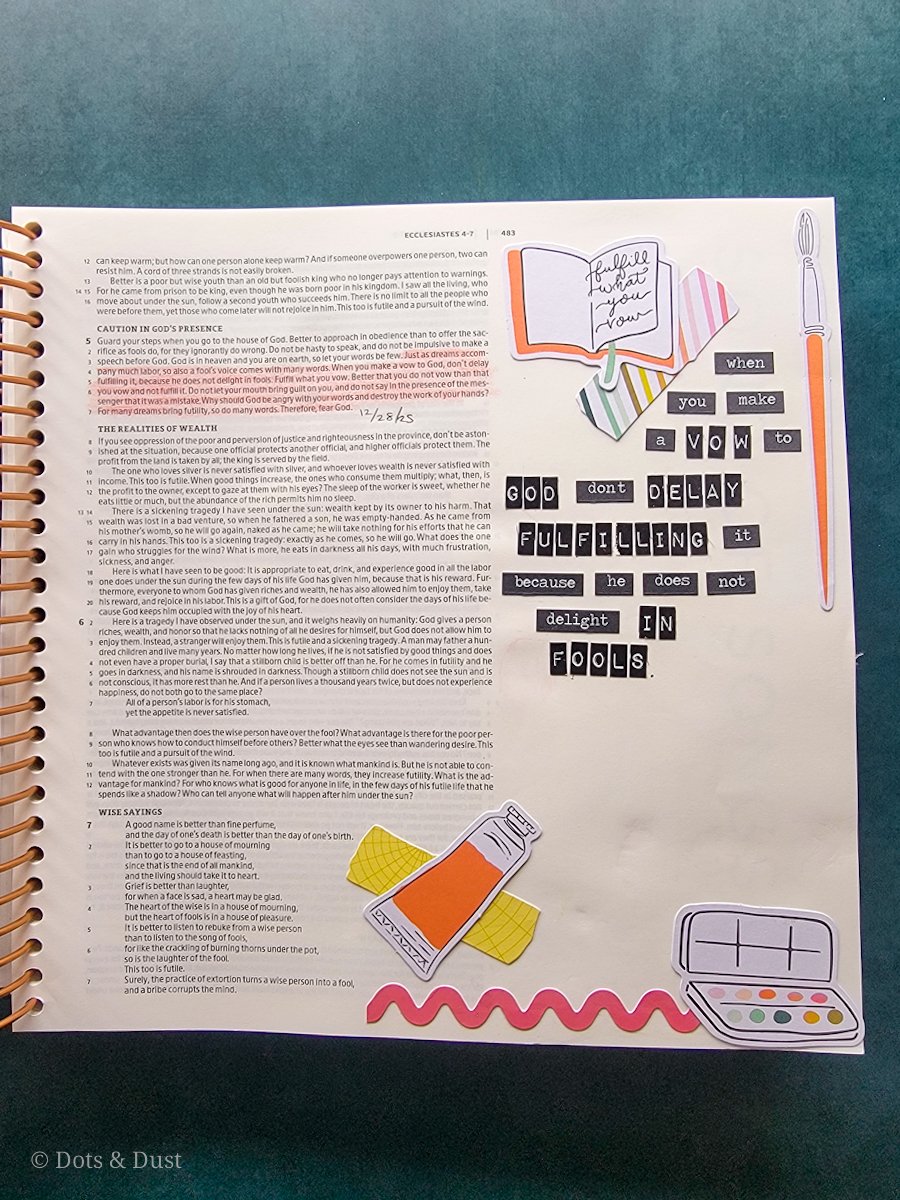 ECCLESIASTES 4-7 | 483
12 can keep warm; but how can one person alone keep warm? And if someone overpowers one person, two can
resist him. A cord of three strands is not easily broken.
13 Better is a poor but wise youth than an old but foolish king who no longer pays attention to warnings.
14 15 For he came from prison to be king, even though he was born poor in his kingdom. I saw all the living, who
16 move about under the sun, follow a second youth who succeeds him. There is no limit to all the people who
were before them, yet those who come later will not rejoice in him. This too is futile and a pursuit of the wind.
CAUTION IN GOD'S PRESENCE
5 Guard your steps when you go to the house of God. Better to approach in obedience than to offer the sac-
2 rifice as fools do, for they ignorantly do wrong. Do not be hasty to speak, and do not be impulsive to make a
3 speech before God. God is in heaven and you are on earth, so let your words be few. Just as dreams accom-
4 pany much labor, so also a fool's voice comes with many words. When you make a vow to God, don't delay
5 fulfilling it, because he does not delight in fools. Fulfill what you vow. Better that you do not vow than that
6 you vow and not fulfill it. Do not let your mouth bring guilt on you, and do not say in the presence of the mes-
senger that it was a mistake. Why should God be angry with your words and destroy the work of your hands?
7 For many dreams bring futility, so do many words. Therefore, fear God. 12/28/25
THE REALITIES OF WEALTH
8 If you see oppression of the poor and perversion of justice and righteousness in the province, don't be aston-
9 ished at the situation, because one official protects another official, and higher officials protect them. The
profit from the land is taken by all; the king is served by the field.
10 The one who loves silver is never satisfied with silver, and whoever loves wealth is never satisfied with
11 income. This too is futile. When good things increase, the ones who consume them multiply; what, then, is
12 the profit to the owner, except to gaze at them with his eyes? The sleep of the worker is sweet, whether he
eats little or much, but the abundance of the rich permits him no sleep.
13 14 There is a sickening tragedy I have seen under the sun: wealth kept by its owner to his harm. That
15 wealth was lost in a bad venture, so when he fathered a son, he was empty-handed. As he came from
his mother's womb, so he will go again, naked as he came; he will take nothing for his efforts that he can
16 carry in his hands. This too is a sickening tragedy: exactly as he comes, so he will go. What does the one
17 gain who struggles for the wind? What is more, he eats in darkness all his days, with much frustration,
sickness, and anger.
18 Here is what I have seen to be good: It is appropriate to eat, drink, and experience good in all the labor
19 one does under the sun during the few days of his life God has given him, because that is his reward. Fur-
thermore, everyone to whom God has given riches and wealth, he has also allowed him to enjoy them, take
20 his reward, and rejoice in his labor. This is a gift of God, for he does not often consider the days of his life be-
cause God keeps him occupied with the joy of his heart.
6 2 Here is a tragedy I have observed under the sun, and it weighs heavily on humanity: God gives a person
riches, wealth, and honor so that he lacks nothing of all he desires for himself, but God does not allow him to
3 enjoy them. Instead, a stranger will enjoy them. This is futile and a sickening tragedy. A man may father a hun-
dred children and live many years. No matter how long he lives, if he is not satisfied by good things and does
4 not even have a proper burial, I say that a stillborn child is better off than he. For he comes in futility and he
5 goes in darkness, and his name is shrouded in darkness. Though a stillborn child does not see the sun and is
6 not conscious, it has more rest than he. And if a person lives a thousand years twice, but does not experience
happiness, do not both go to the same place?
7 All of a person's labor is for his stomach,
yet the appetite is never satisfied.
8 What advantage then does the wise person have over the fool? What advantage is there for the poor per-
9 son who knows how to conduct himself before others? Better what the eyes see than wandering desire. This
too is futile and a pursuit of the wind.
10 Whatever exists was given its name long ago, and it is known what mankind is. But he is not able to con-
11 tend with the one stronger than he. For when there are many words, they increase futility. What is the ad-
12 vantage for mankind? For who knows what is good for anyone in life, in the few days of his futile life that he
spends like a shadow? Who can tell anyone what will happen after him under the sun?
WISE SAYINGS
7 A good name is better than fine perfume,
and the day of one's death is better than the day of one's birth.
2 It is better to go to a house of mourning
than to go to a house of feasting,
since that is the end of all mankind,
and the living should take it to heart.
3 Grief is better than laughter,
for when a face is sad, a heart may be glad.
4 The heart of the wise is in a house of mourning,
but the heart of fools is in a house of pleasure.
5 It is better to listen to rebuke from a wise person
than to listen to the song of fools,
6 for like the crackling of burning thorns under the pot,
so is the laughter of the fool.
This too is futile.
7 Surely, the practice of extortion turns a wise person into a fool,
and a bribe corrupts the mind.
fulfill
what
you
vow
when
you make
a VOW to
GOD dont DELAY
FULFILLING it
because he does not
delight IN
FOOLS.
© Dots & Dust